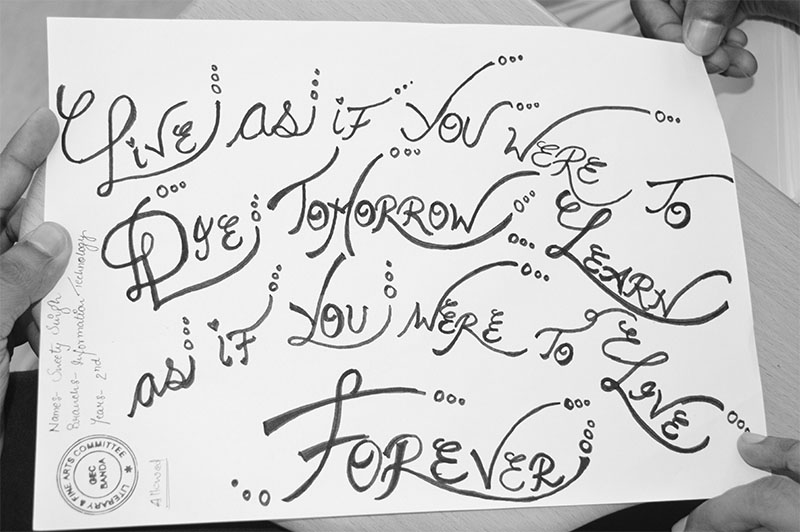 Live as if you were to
Dye Tomorrow Learn
as if you were to Live
Forever
Name:- Sweety Singh
Branch:- Information Technology
Year:- 2nd
LITERARY & FINE ARTS COMMITTEE
GEC
BANDA
Allowed